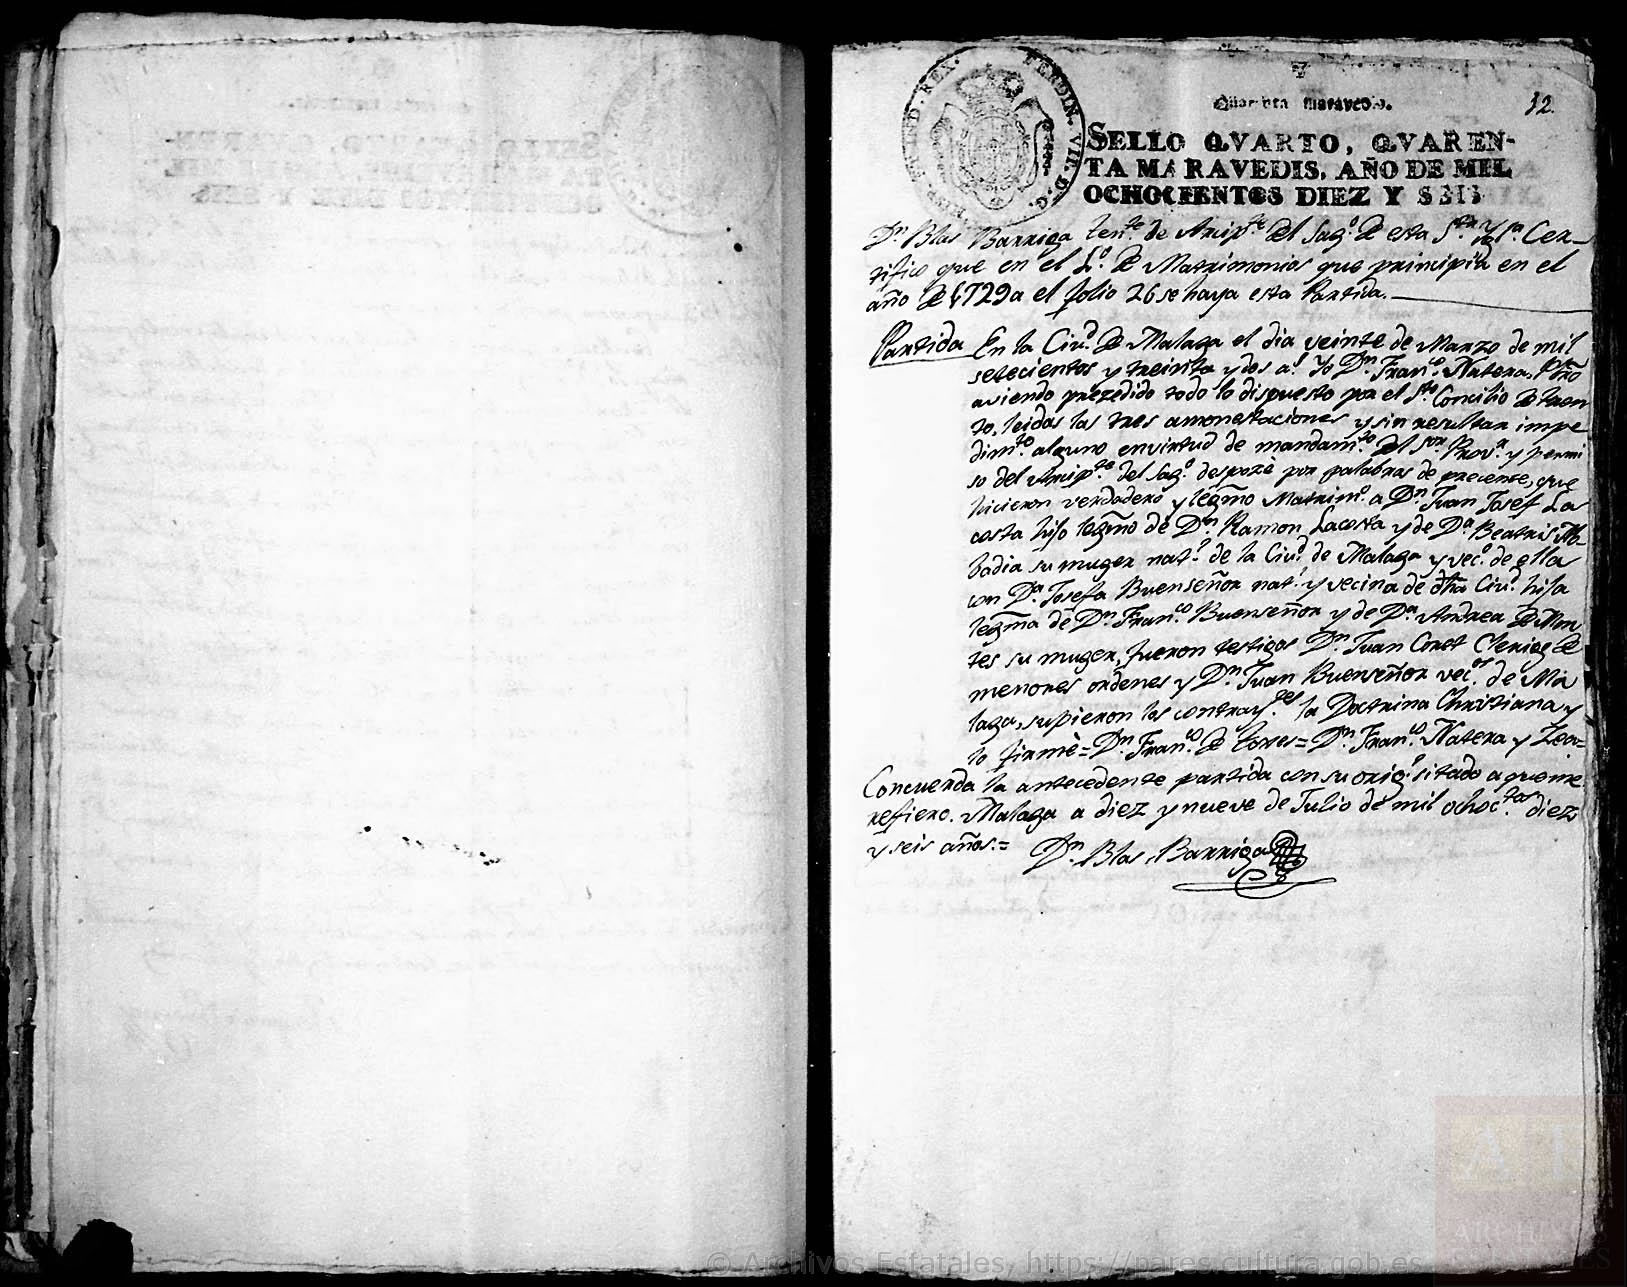 Quarenta maravedis.
12.
FERDIN. VII. D. G. HISP. ET IND. REX.
SELLO QVARTO, QVAREN-
TA MARAVEDIS, AÑO DE MIL
OCHOCIENTOS DIEZ Y SEIS
Dn. Blas Barriga tente. de Arcipte. del Sago. de esta Sta. Ygla. Cer-
tifico que en el Lo. de Matrimonios que principia en el
año de 1729 a el folio 26 se haya esta Partida.
Partida En la Ciud. de Malaga el dia veinte de Marzo de mil
setecientos y treinta y dos as. Yo Dn. Franco. Natera, Pbro
aviendo prezedido todo lo dispuesto por el Sto. Concilio de tren
to, leidas las tres amonestaciones y sin resultar impe
dimto. alguno en virtud de mandamto. del Sor. Provr. y permi
so del Arcipte. del Sago. despoze por palabras de precente, que
hicieron verdadero y legmo Matrimo. a Dn. Juan Josef La
costa hijo legmo de Dn. Ramon Lacosta y de Da. Beatris A-
badia su muger natl. de la Ciud. de Malaga y veco. de ella
con Da. Josefa Buenseñor natl. y vecina de dha Ciud. hija
legma de Dn. Franco. Buenseñor y de Da. Andrea de Mon
tes su muger, fueron testigos Dn. Juan Conet Clerigo de
menores ordenes y Dn. Juan Buenseñor vecos. de Ma
laga, supieron los contrayes. la Doctrina Christiana y
lo firmè = Dn. Franco. de torres = Dn. Franco. Natera y Zea =
Concuerda la antecedente partida con su origl. sitado a que me
refiero. Malaga a diez y nueve de Julio de mil ochoctos. diez
y seis años. =
Dn. Blas Barriga
© Archivos Estatales, https://pares.cultura.gob.es
ARCHIVOS
ESTATALES